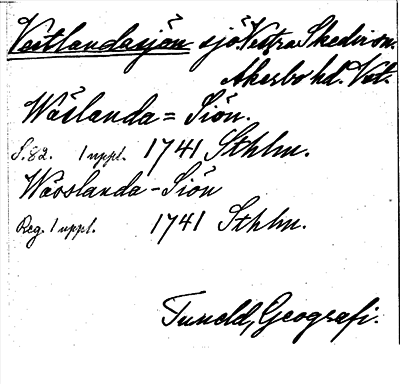 Vestlandasjön sjö Vestra Skedvi sn.
Åkerbo hd. Vstm.
Wäslanda = Siön.
S. 82. 1 uppl. 1741 Sthlm.
Wäoslanda - Siön
Reg. 1 uppl. 1741 Sthlm.
Tuneld, Geografi.